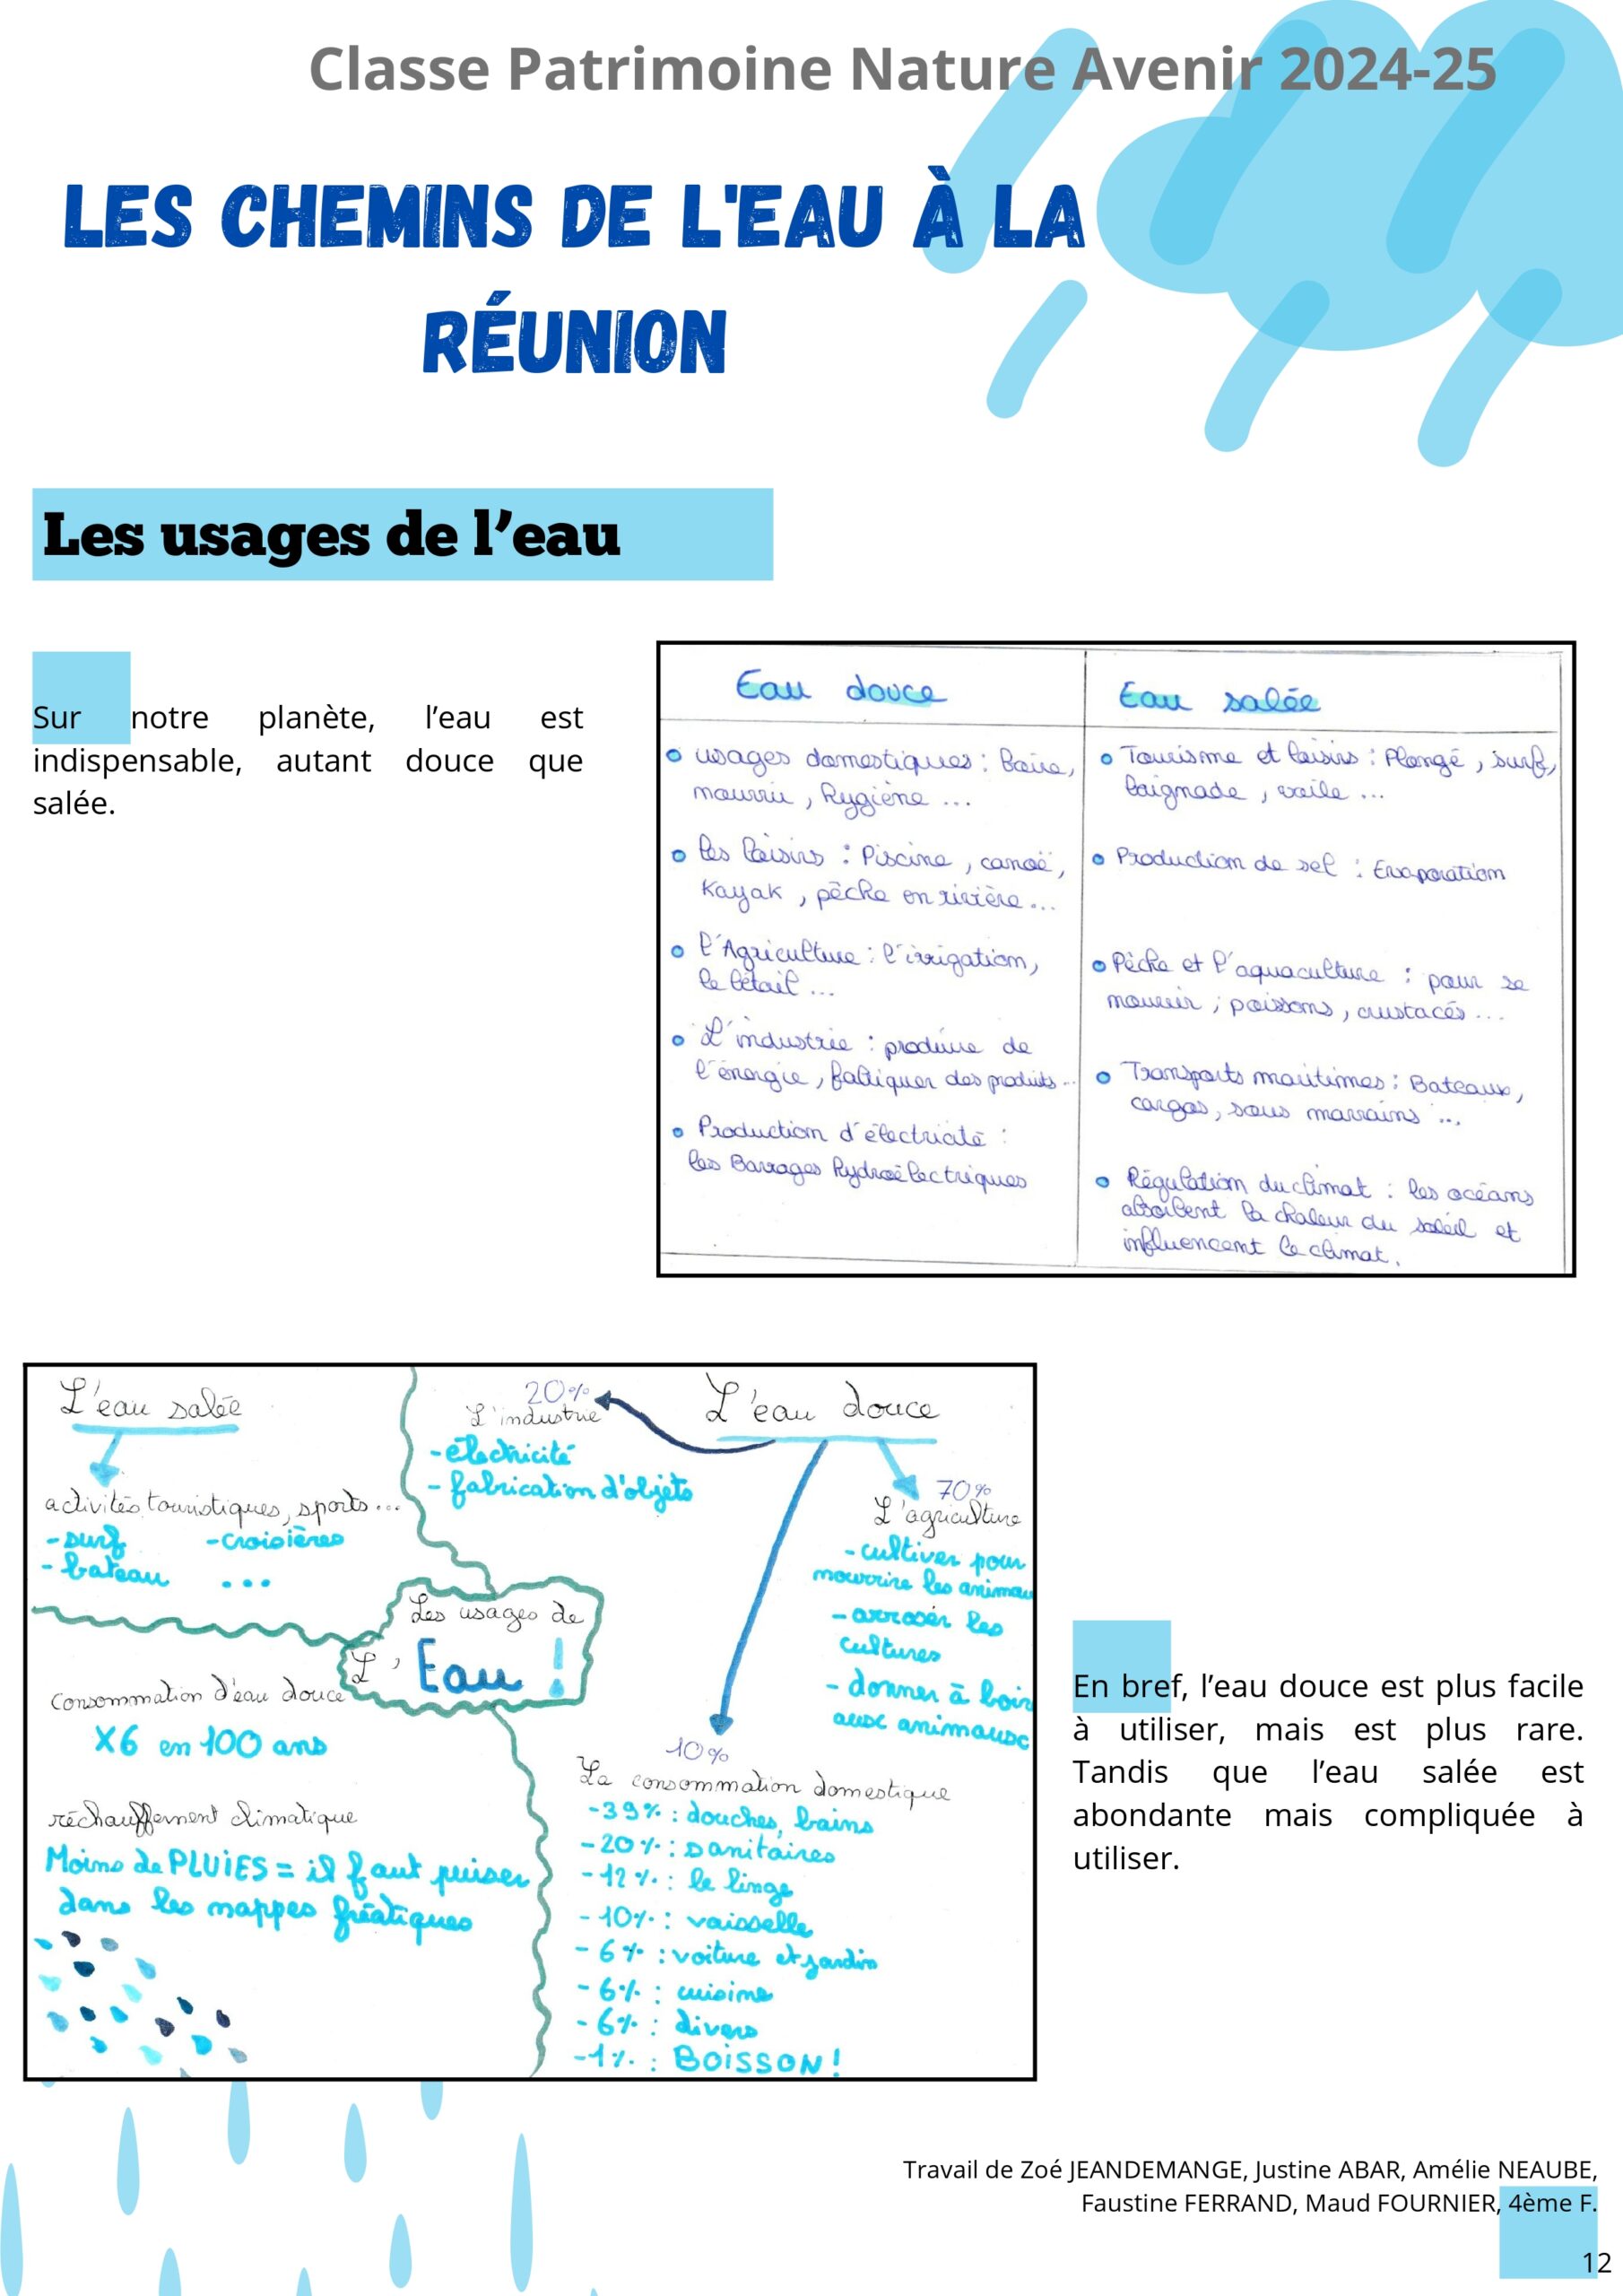 Classe Patrimoine Nature Avenir 2024-25
LES CHEMINS DE L'EAU À LA
RÉUNION
Les usages de l’eau
Sur notre planète, l’eau est
indispensable, autant douce que
salée.
Eau douce
usages domestiques : Boire,
nourrir, hygiène ...
les loisirs : Piscine, canoë,
Kayak, pêche en rivière ...
l'Agriculture : l'irrigation,
le bétail ...
L'industrie : produire de
l'énergie, fabriquer des produits ...
Production d'électricité :
les Barrages hydroélectriques
Eau salée
Tourisme et loisirs : Plongé, surf,
baignade, voile ...
Production de sel : Evaporation
Pêche et l'aquaculture : pour se
nourrir ; poissons, crustacés ...
Transports maritimes : Bateaux,
cargos, sous marrains ...
Régulation du climat : les océans
absorbent la chaleur du soleil et
influencent le climat.
L'eau salée
activités touristiques, sports ...
- surf - croisières
- bateau ...
20%
L'industrie
- électricité
- fabrication d'objets
L'eau douce
70%
L'agriculture
- cultiver pour
nourrire les animau
- arroser les
cultures
- donner à boir
aux animaux
Les usages de
L'Eau !
Consommation d'eau douce
X6 en 100 ans
réchauffement climatique
Moins de PLUiES = il faut puiser
dans les nappes fréatiques
10%
La consommation domestique
-39% : douches, bains
-20% : sanitaires
-12% : le linge
-10% : vaisselle
-6% : voiture et jardin
-6% : cuisine
-6% : divers
-1% : BOiSSON !
En bref, l’eau douce est plus facile
à utiliser, mais est plus rare.
Tandis que l’eau salée est
abondante mais compliquée à
utiliser.
Travail de Zoé JEANDEMANGE, Justine ABAR, Amélie NEAUBE,
Faustine FERRAND, Maud FOURNIER, 4ème F.
12